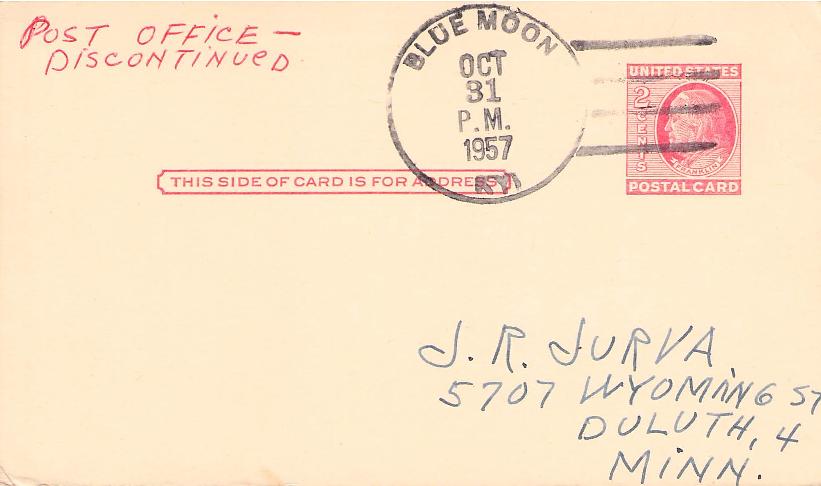 POST OFFICE —
DISCONTINUED
BLUE MOON
OCT
31
P.M.
1957
KY.
UNITED STATES
2 CENTS
FRANKLIN
POSTAL CARD
THIS SIDE OF CARD IS FOR ADDRESS
J. R. JURVA
5707 WYOMING ST
DULUTH, 4
MINN.